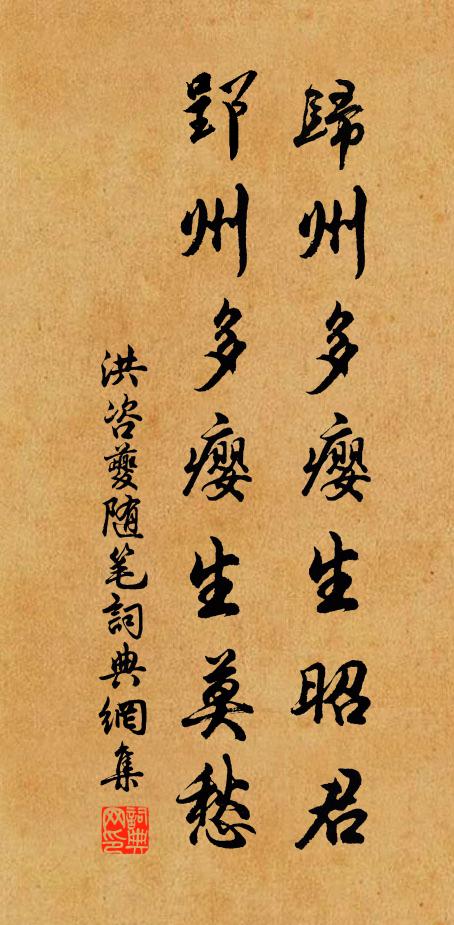 歸州多癭生昭君
郢州多癭生莫愁
洪咨夔随笔詞典網集
詞典网印